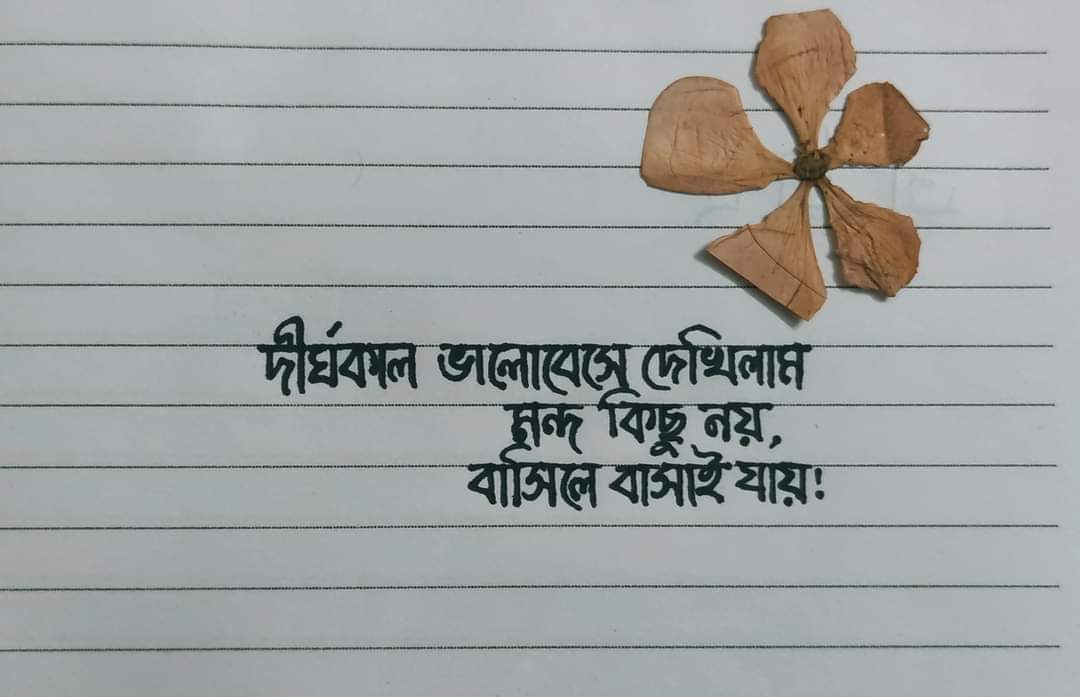 দীর্ঘকাল ভালোবেসে দেখিলাম
মন্দ কিছু নয়,
বাসিলে বাসাই যায়!